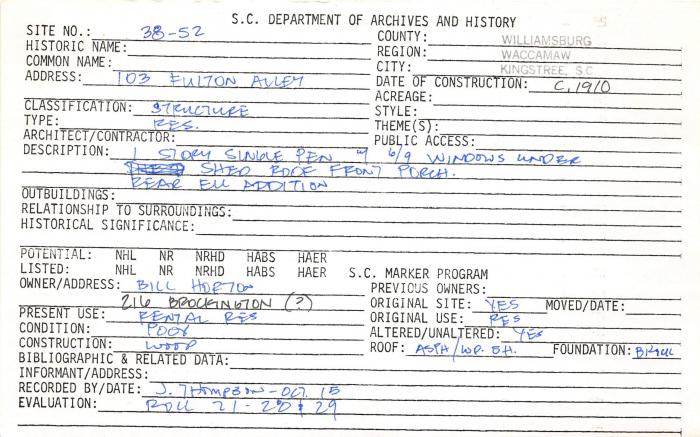 S.C. DEPARTMENT OF ARCHIVES AND HISTORY
SITE NO.: 38-52
HISTORIC NAME:
COMMON NAME:
ADDRESS: 103 FULTON ALLEY
COUNTY: WILLIAMSBURG
REGION: WACCAMAW
CITY: KINGSTREE, S.C.
DATE OF CONSTRUCTION: C. 1910
ACREAGE:
CLASSIFICATION: STRUCTURE
STYLE:
TYPE: RES.
THEME(S):
ARCHITECT/CONTRACTOR:
PUBLIC ACCESS:
DESCRIPTION: 1 STORY SINGLE PEN w/ 6/9 WINDOWS UNDER
SHED ROOF FRONT PORCH.
REAR ELL ADDITION
OUTBUILDINGS:
RELATIONSHIP TO SURROUNDINGS:
HISTORICAL SIGNIFICANCE:
POTENTIAL: NHL NR NRHD HABS HAER
LISTED: NHL NR NRHD HABS HAER S.C. MARKER PROGRAM
OWNER/ADDRESS: BILL HORTON
216 BROCKINGTON (?)
PREVIOUS OWNERS:
ORIGINAL SITE: YES MOVED/DATE:
PRESENT USE: RENTAL RES
ORIGINAL USE: RES
CONDITION: POOR
ALTERED/UNALTERED: YES
CONSTRUCTION: WOOD
ROOF: ASPH/WD. SH. FOUNDATION: BRICK
BIBLIOGRAPHIC & RELATED DATA:
INFORMANT/ADDRESS:
RECORDED BY/DATE: J. THOMPSON - OCT. 15
EVALUATION: ROLL 21 - 28 & 29